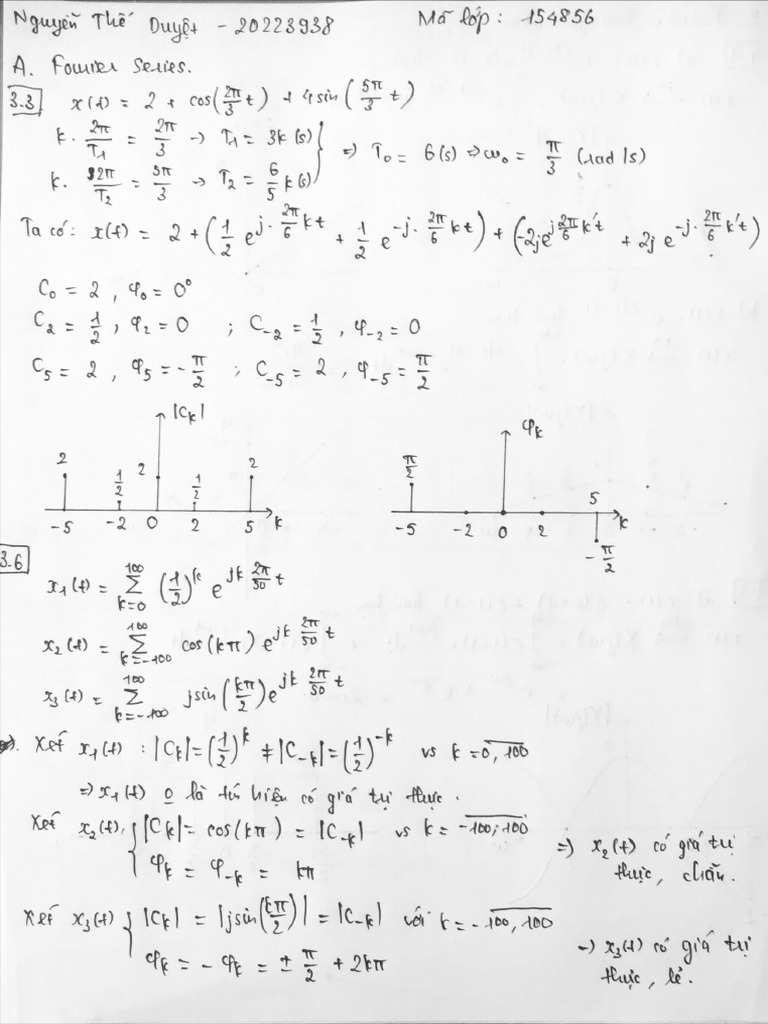 Nguyễn Thế Duyệt - 20223938 Mã lớp: 154856
A. Fourier Series.
3.3 x(t) = 2 + cos(2π/3 t) + 4 sin(5π/3 t)
k. 2π/T₁ = 2π/3 → T₁ = 3k (s)
k. 2π/T₂ = 5π/3 → T₂ = 6/5 k(s) } ⇒ T₀ = 6(s) ⇒ ω₀ = π/3 (rad/s)
Ta có: x(t) = 2 + (1/2 e^{j·2π/6 kt} + 1/2 e^{-j·2π/6 kt}) + (-2j e^{j 2π/6 k't} + 2j e^{-j·2π/6 k't})
C₀ = 2, φ₀ = 0°
C₂ = 1/2, φ₂ = 0 ; C₋₂ = 1/2, φ₋₂ = 0
C₅ = 2, φ₅ = -π/2 ; C₋₅ = 2, φ₋₅ = π/2
|Cₖ| φₖ
2 1/2 2 1/2 2 π/2 5
-5 -2 0 2 5 k -5 -2 0 2 k
-π/2
3.6
x₁(t) = Σ_{k=0}^{100} (1/2)^k e^{jk 2π/50 t}
x₂(t) = Σ_{k=-100}^{100} cos(kπ) e^{jk 2π/50 t}
x₃(t) = Σ_{k=-100}^{100} j sin(kπ/2) e^{jk 2π/50 t}
Xét x₁(t) : |Cₖ| = (1/2)^k ≠ |C₋ₖ| = (1/2)^{-k} vs k = \overline{0, 100}
⇒ x₁(t) o là tín hiệu có giá trị thực.
Xét x₂(t), { |Cₖ| = cos(kπ) = |C₋ₖ| vs k = \overline{-100, 100}
φₖ = φ₋ₖ = kπ
⇒ x₂(t) có giá trị
thực, chẵn.
Xét x₃(t) { |Cₖ| = |j sin(kπ/2)| = |C₋ₖ| với k = \overline{-100, 100}
φₖ = -φₖ = ± π/2 + 2kπ
→ x₃(t) có giá trị
thực, lẻ.